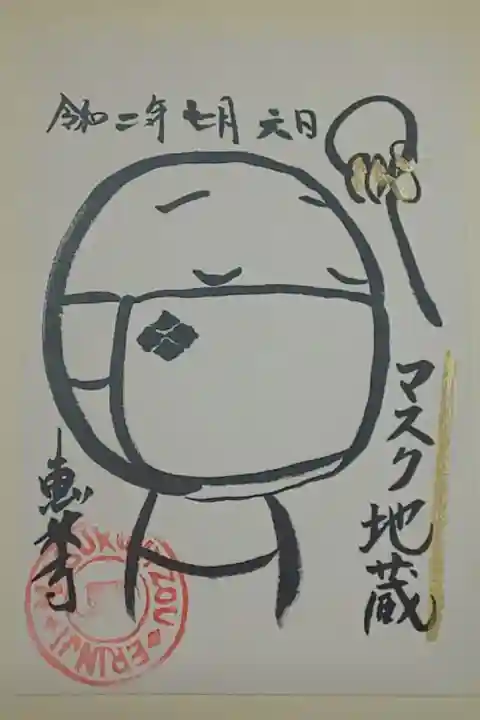 令和二年七月六日
マスク地蔵
恵林寺
ERINJI